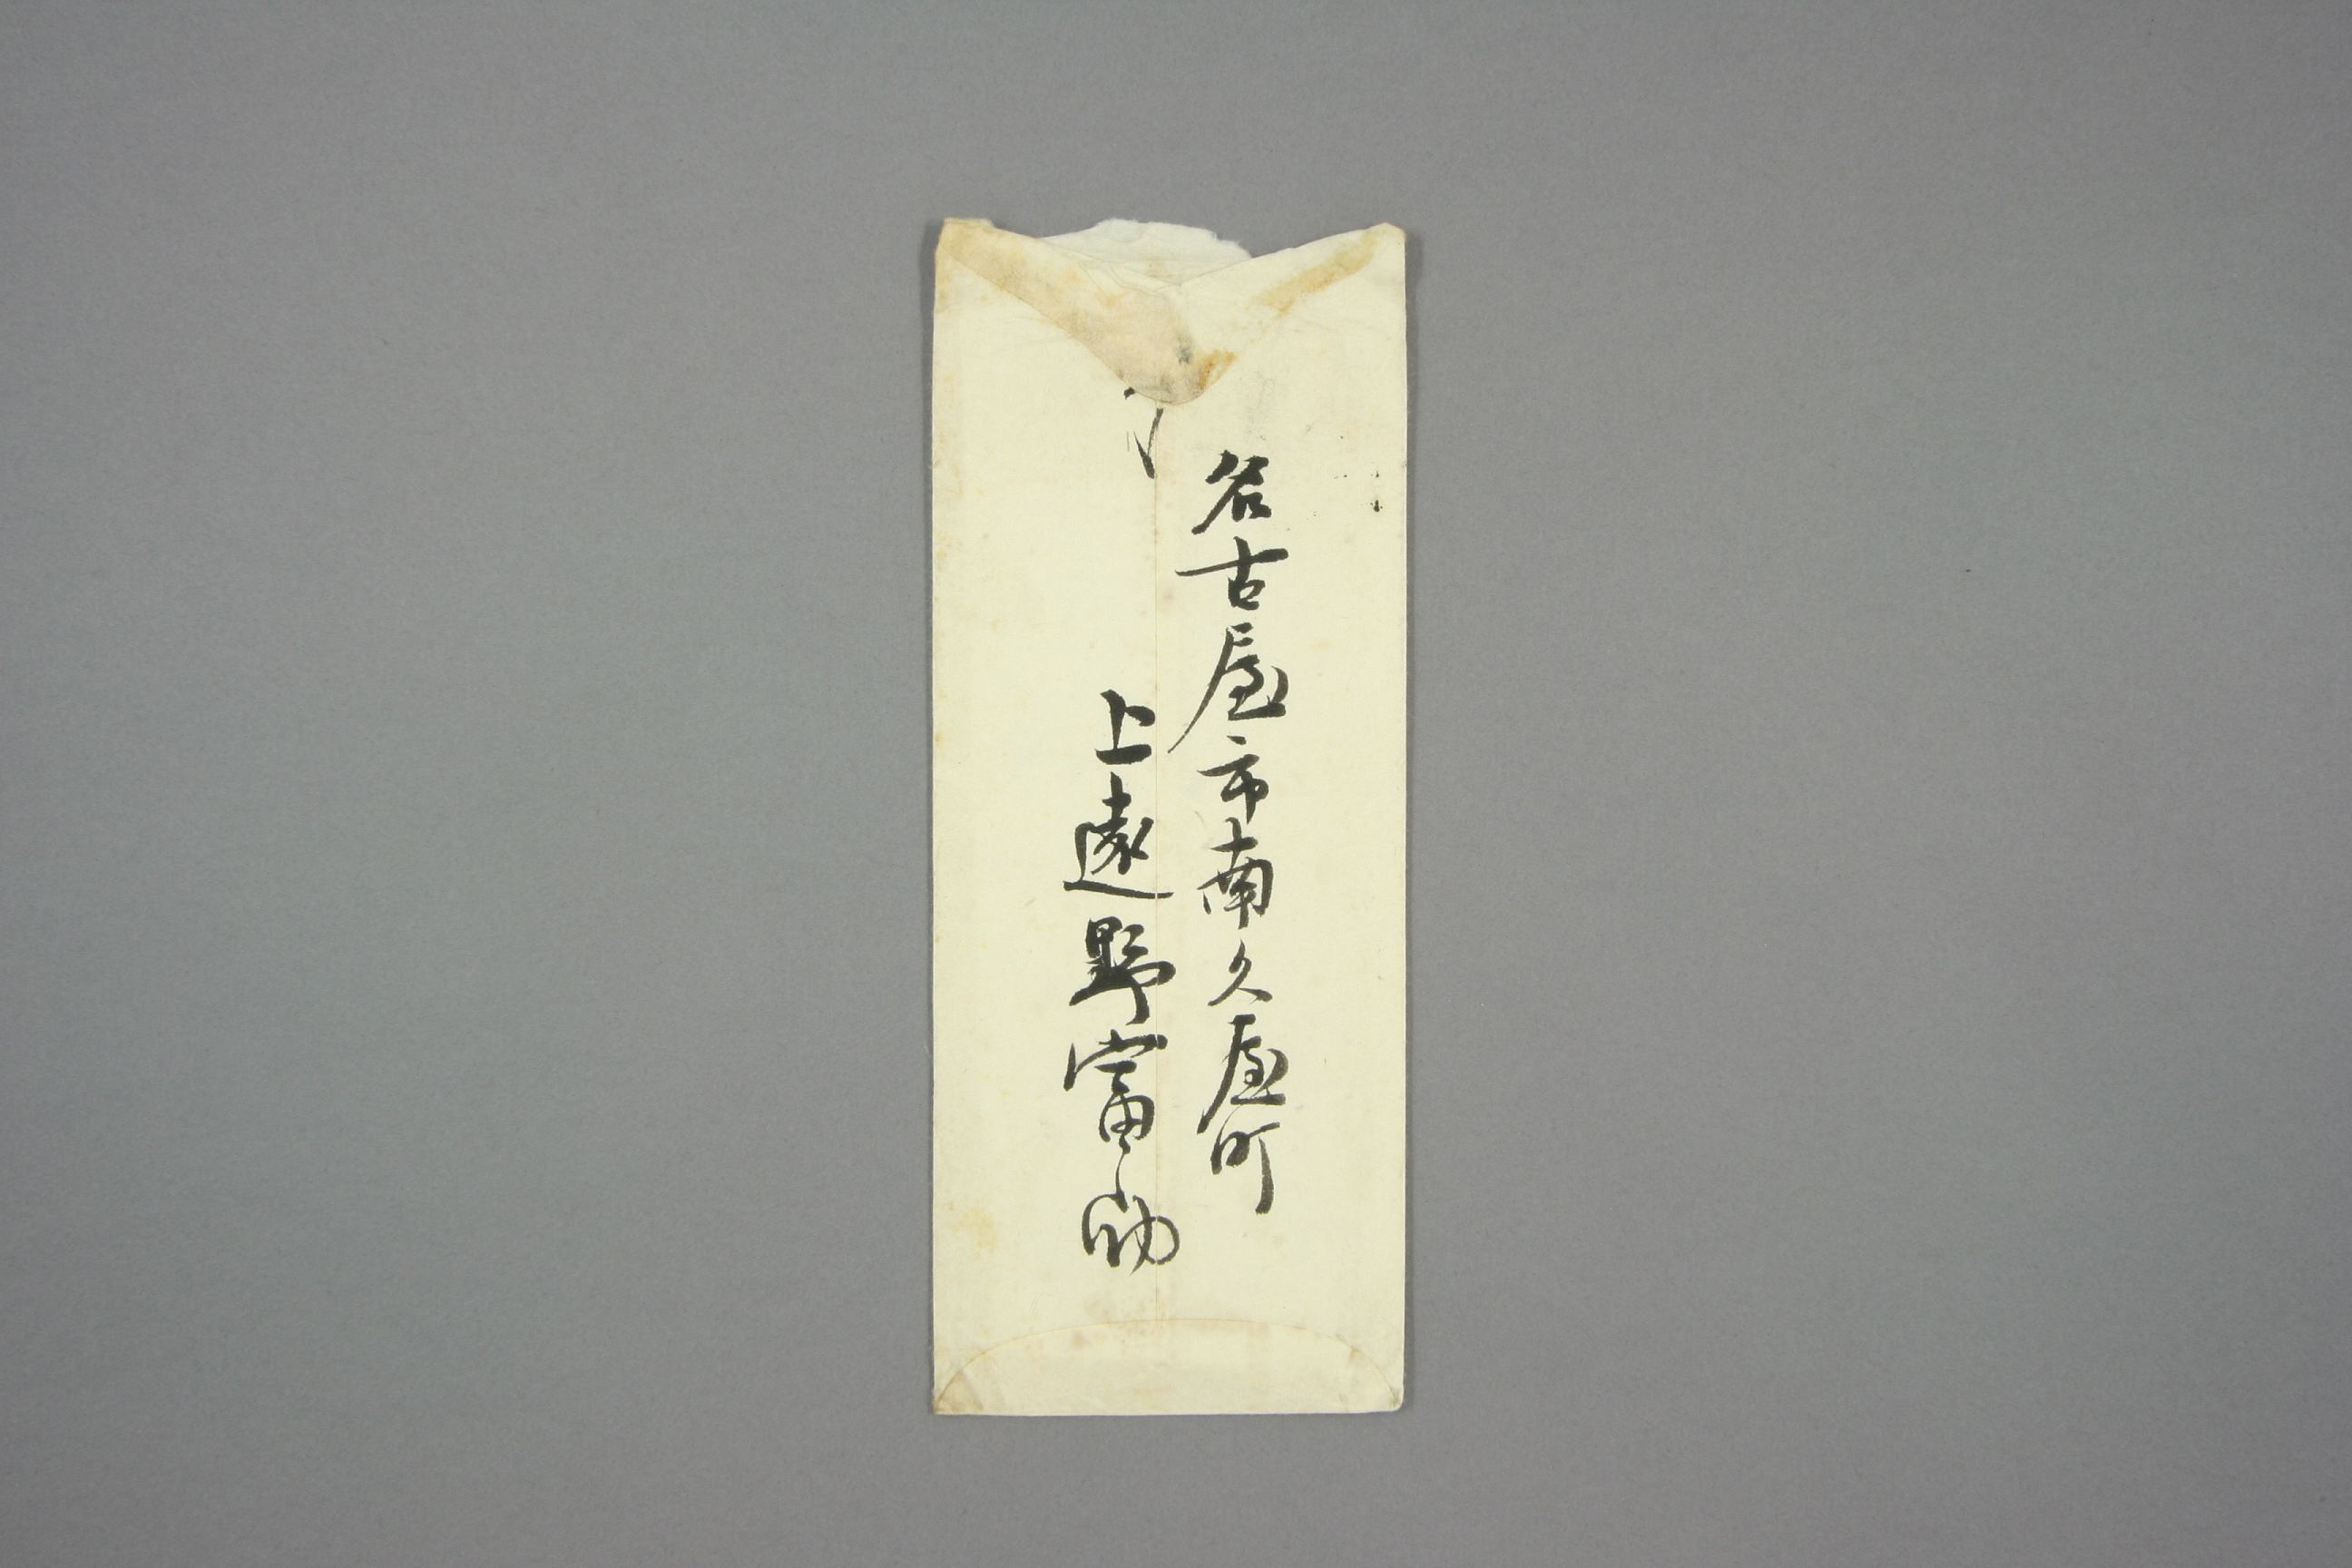 名古屋市南久屋町
上遠野富之助